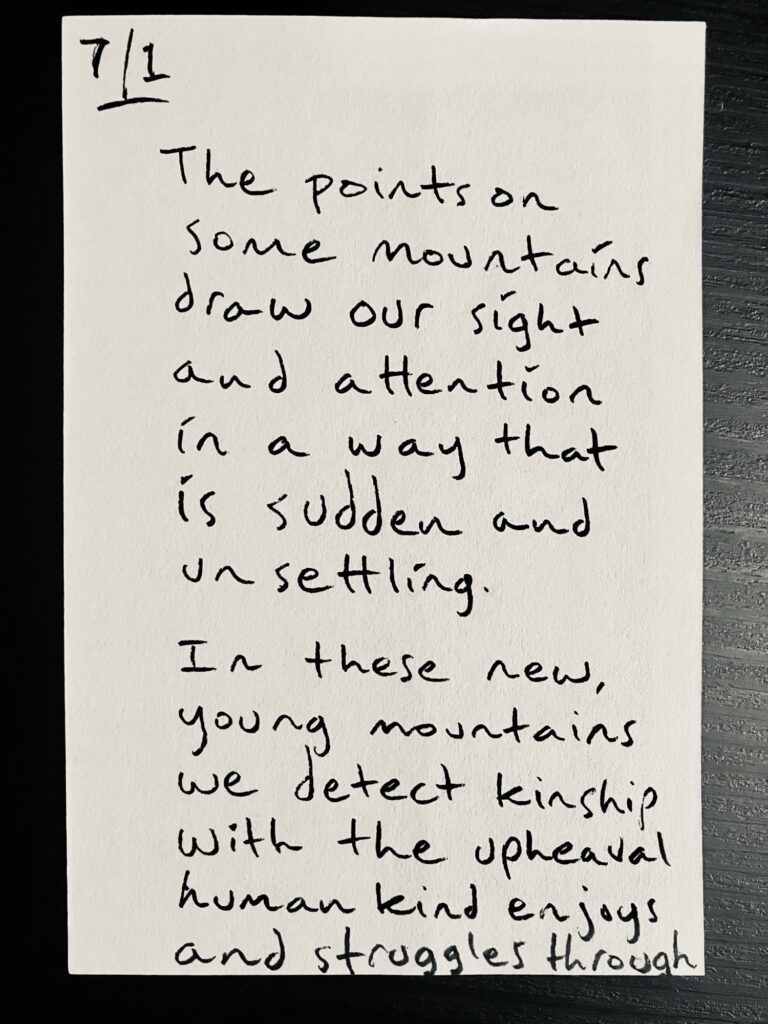 7/1
The points on
some mountains
draw our sight
and attention
in a way that
is sudden and
unsettling.
In these new,
young mountains
we detect kinship
with the upheaval
human kind enjoys
and struggles through